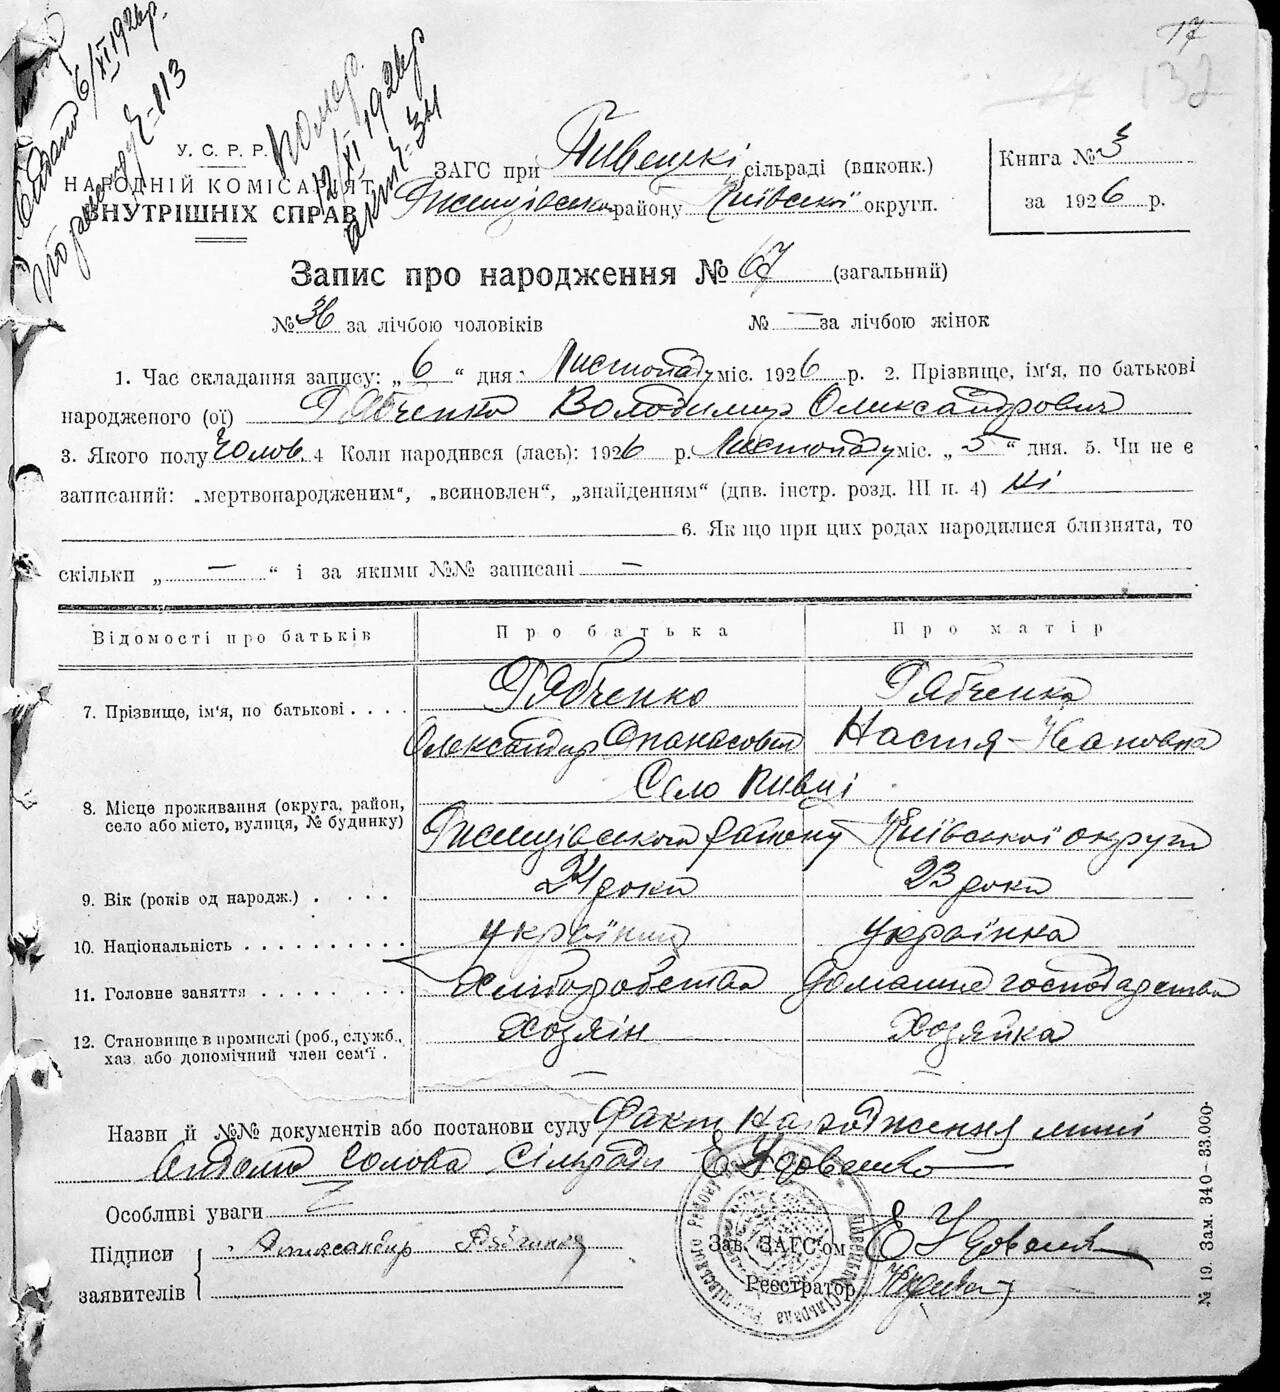 17
132
Видано 6/XI 1926р.
113
помер.
12/XI 1926р
акт № 34
У. С. Р. Р.
НАРОДНІЙ КОМІСАРІЯТ
ВНУТРІШНІХ СПРАВ
ЗАГС при Пивецкі сільраді (виконк.)
Ржищівськ. району Київської округи.
Книга № 3
за 1926 р.
Запис про народження № 67 (загальний)
№ 36 за лічбою чоловіків № — за лічбою жінок
1. Час складання запису: „6“ дня Листопаду міс. 1926 р. 2. Прізвище, ім'я, по батькові
народженого (ої) Рябченко Володимир Олександрович
3. Якого полу Чолов. 4 Коли народився (лась): 1926 р. Листопаду міс. „5“ дня. 5. Чи не є
записаний: „мертвонародженим“, „всиновлен“, „знайденням“ (див. інстр. розд. III п. 4) Ні
6. Якщо при цих родах народилися близнята, то
скільки „ — “ і за якими №№ записані —
Відомості про батьків Про батька Про матір
7. Прізвище, ім'я, по батькові . . . . Рябченко Рябченко
Олександир Опанасович Настя Ивановна
8. Місце проживання (округа, район, село або місто, вулиця, № будинку) Село Пивці
Ржищівського району Київської округи
9. Вік (років од народж.) . . . . 24 роки 23 роки
10. Національність . . . . . . . . . . українець українка
11. Головне заняття . . . . . . . . Хліборобство домашнє господарство
12. Становище в промислі (роб., служб., хаз. або допомічний член сем'ї . Хозяїн Хозяйка
— —
Назви й №№ документів або постанови суду Факт народження мині
Голова Сільради Е Удовенко
Особливі уваги
Підписи заявителів Александир Рябченко
Зав. ЗАГС'ом Е Удовенко
Реєстратор
№ 19. Зам. 340—33.000.